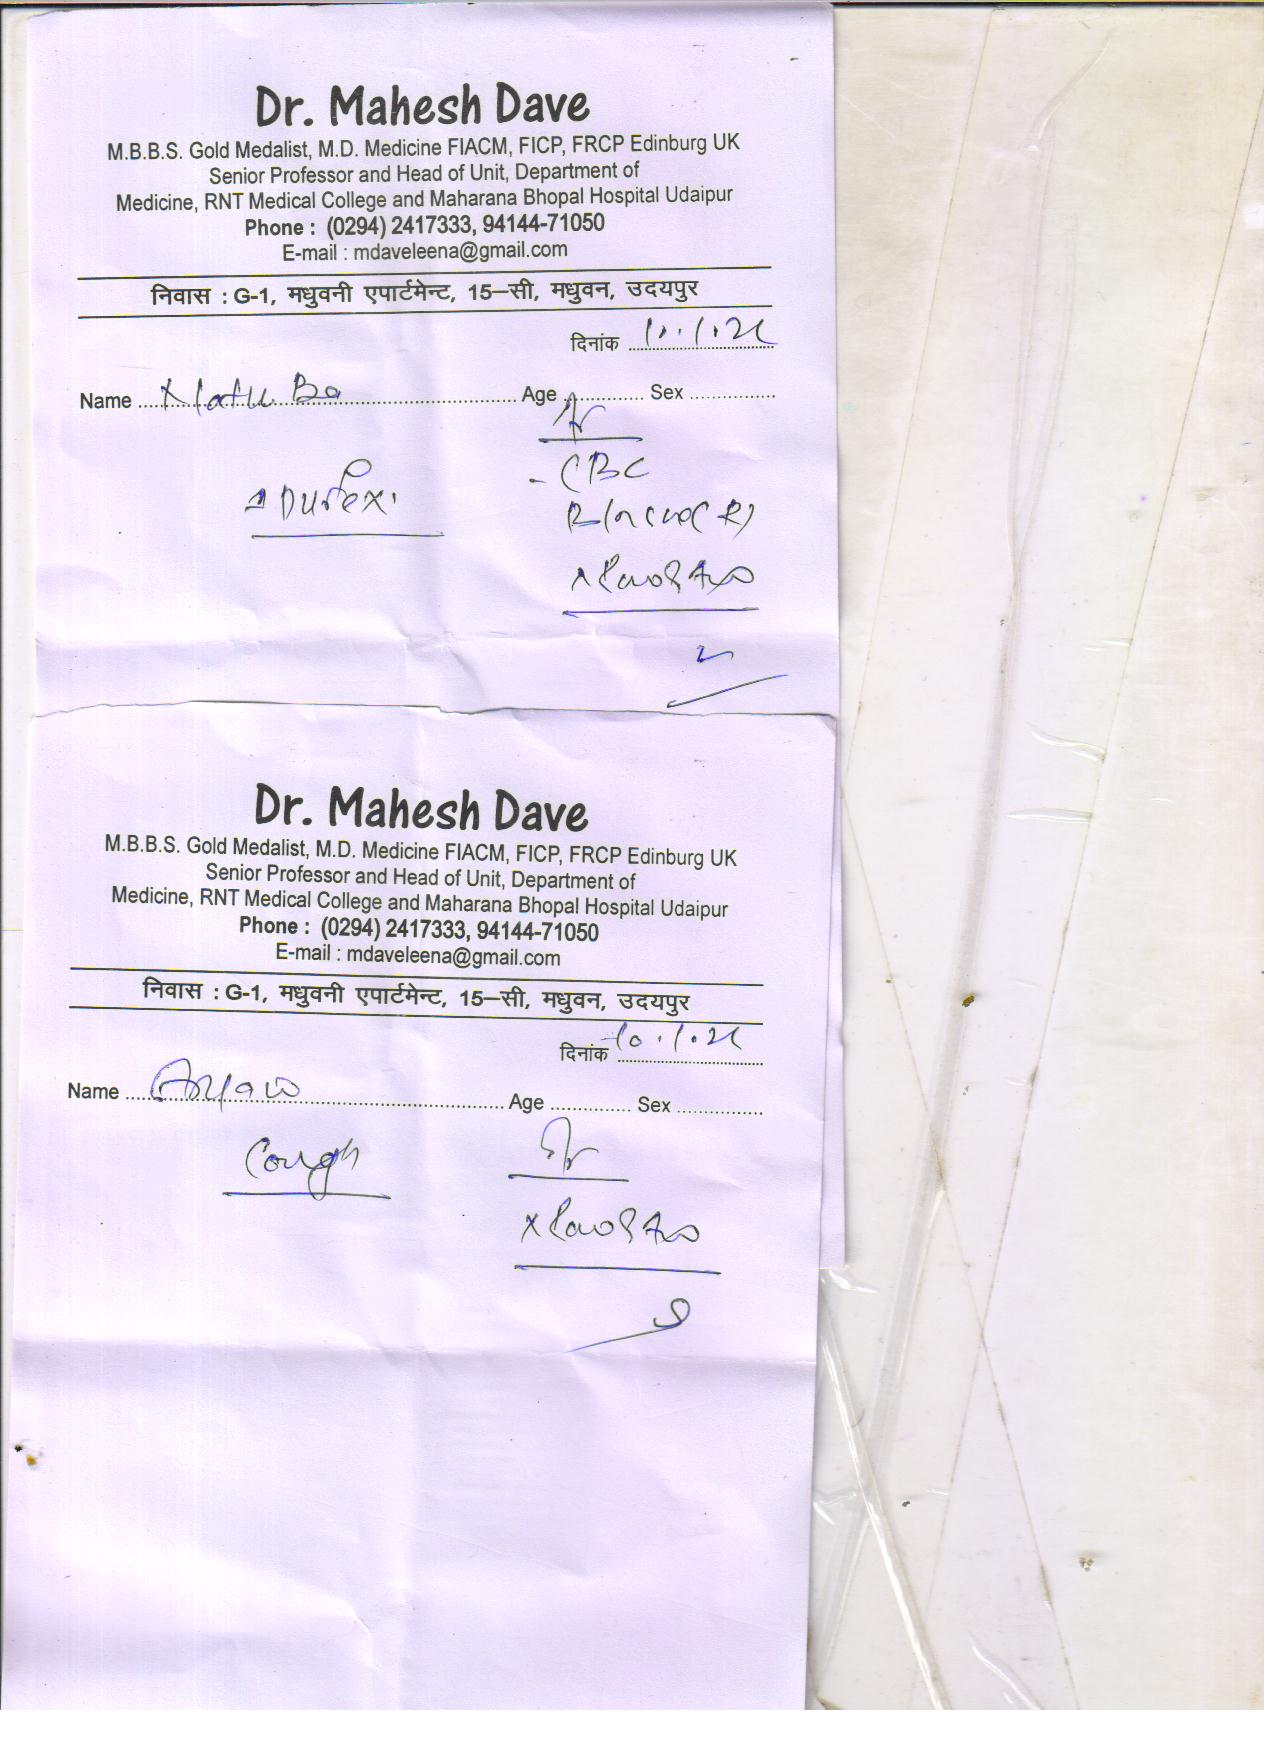 Dr. Mahesh Dave
M.B.B.S. Gold Medalist, M.D. Medicine FIACM, FICP, FRCP Edinburg UK
Senior Professor and Head of Unit, Department of
Medicine, RNT Medical College and Maharana Bhopal Hospital Udaipur
Phone : (0294) 2417333, 94144-71050
E-mail : mdaveleena@gmail.com
निवास : G-1, मधुवनी एपार्टमेन्ट, 15–सी, मधुवन, उदयपुर
दिनांक
Name Age Sex
- CBC
Dr. Mahesh Dave
M.B.B.S. Gold Medalist, M.D. Medicine FIACM, FICP, FRCP Edinburg UK
Senior Professor and Head of Unit, Department of
Medicine, RNT Medical College and Maharana Bhopal Hospital Udaipur
Phone : (0294) 2417333, 94144-71050
E-mail : mdaveleena@gmail.com
निवास : G-1, मधुवनी एपार्टमेन्ट, 15–सी, मधुवन, उदयपुर
दिनांक
Name Age Sex
Cough